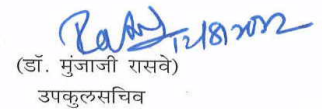 12/8/2022
(डॉ. मुंजाजी रासवे)
उपकुलसचिव